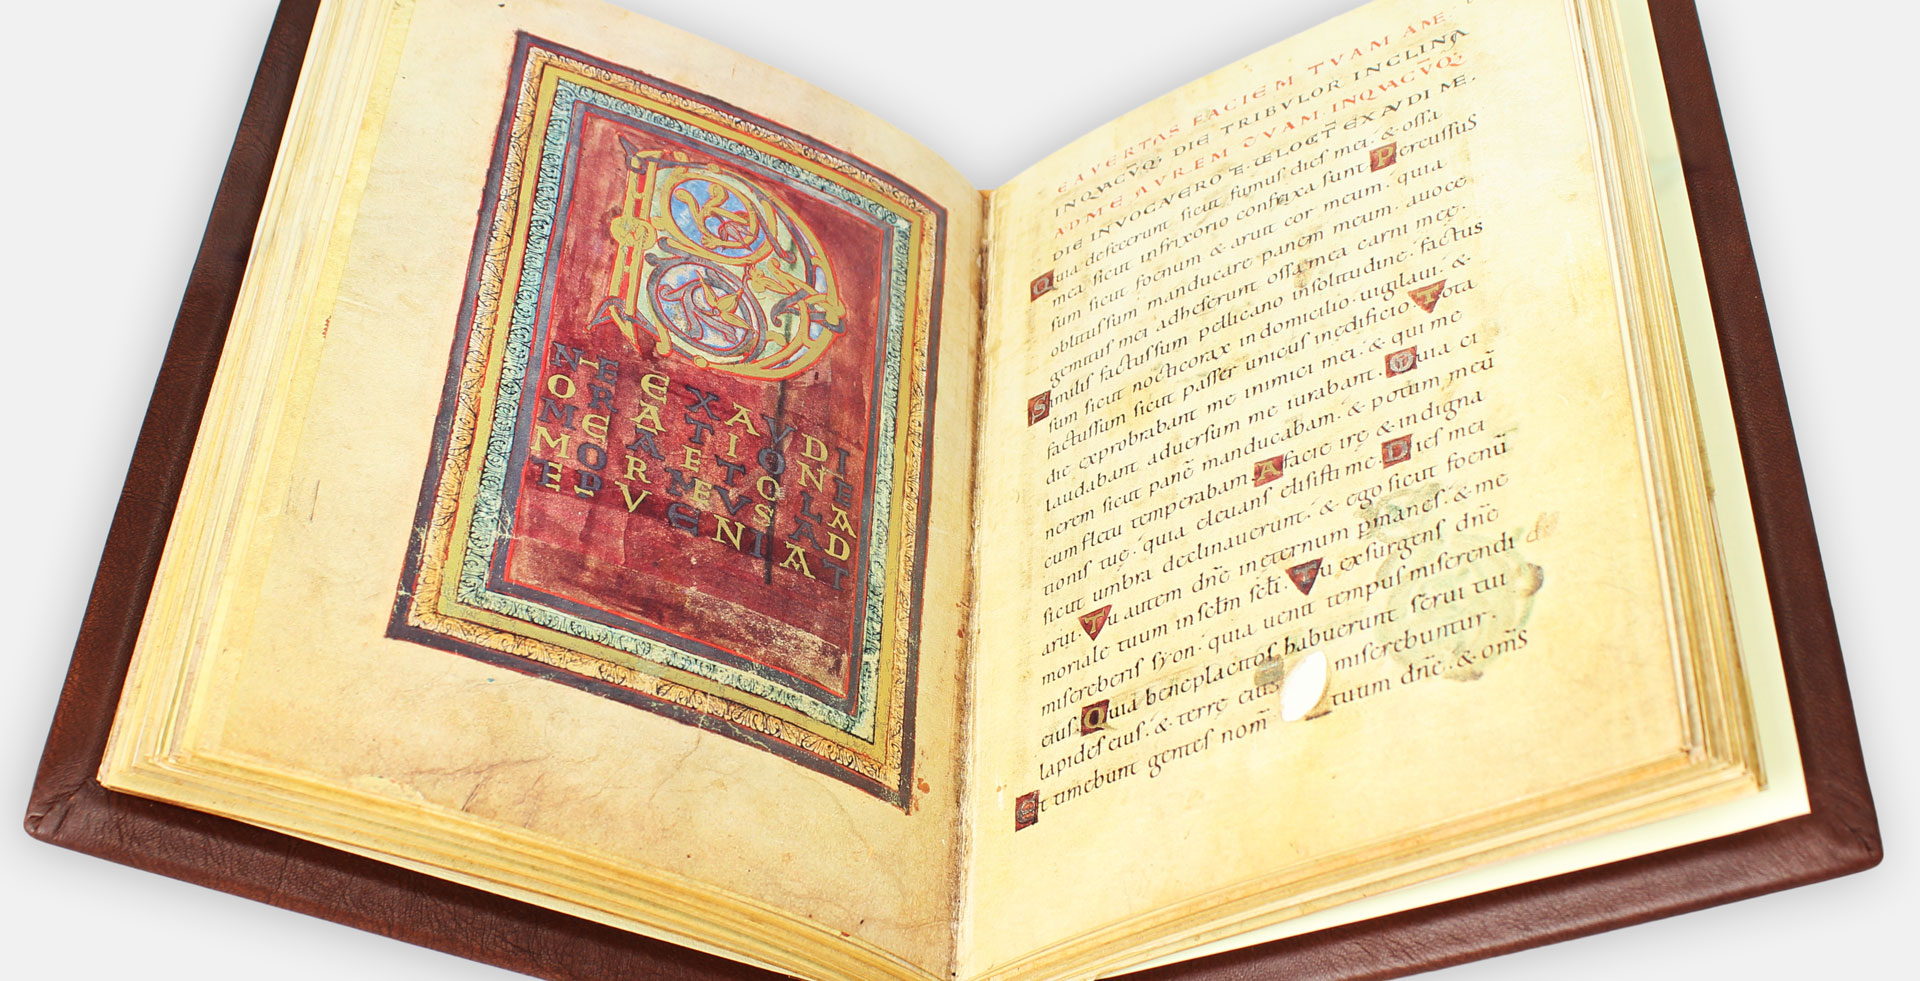 D
NE EXAVDI
ORATIONE
MEA ET CLA
MOR MEVS AD
VENIAT
EAVERTAS FACIEM TVAM AME
INQVACVQ; DIE TRIBVLOR INCLINA
ADME AVREM TVAM. INQVACVQ;
DIE INVOCAVERO TE. VELOCT EXAVDI ME.
Quia defecerunt sicut fumus dies mei. & ossa
mea sicut infrixorio confrixa sunt Percussus
sum sicut foenum & aruit cor meum. quia
oblitus sum manducare panem meum. auoce
gemitus mei adheserunt ossa mea carni meę.
Similis factus sum pellicano insolitudine. factus
sum sicut nocticorax in domicilio. uigilaui. &
factus sum sicut passer unicus inedificio Tota
die exprobrabant me inimici mei. & qui me
laudabant aduersum me iurabant. Quia ci
nerem sicut panē manducabam. & potum meū
cum fletu temperabam. Afacie irę & indigna
tionis tuę. quia eleuans elisisti me. Dies mei
sicut umbra declinauerunt. & ego sicut foenū
arui. Tu autem dnē ineternum pmanes. & me
moriale tuum in sclm scli. Tu exsurgens dnē
misereberis syon. quia uenit tempus miserendi
eius. Quia beneplacitos habuerunt serui tui
lapides eius. & terrę eius miserebuntur.
Et timebunt gentes nom̄ tuum dnē. & om̄s